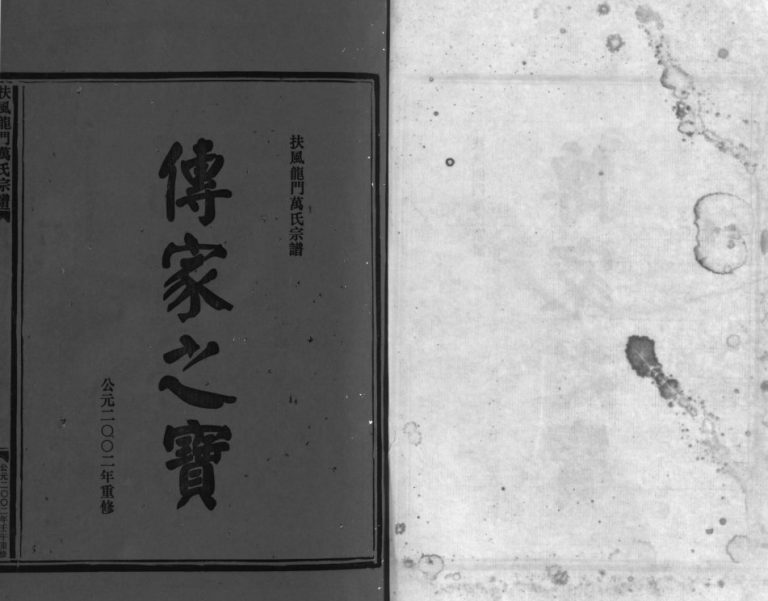 扶風龍門萬氏宗譜
傳家之寶
公元二〇〇二年重修
扶風龍門萬氏宗譜
公元二〇〇二年壬午重修